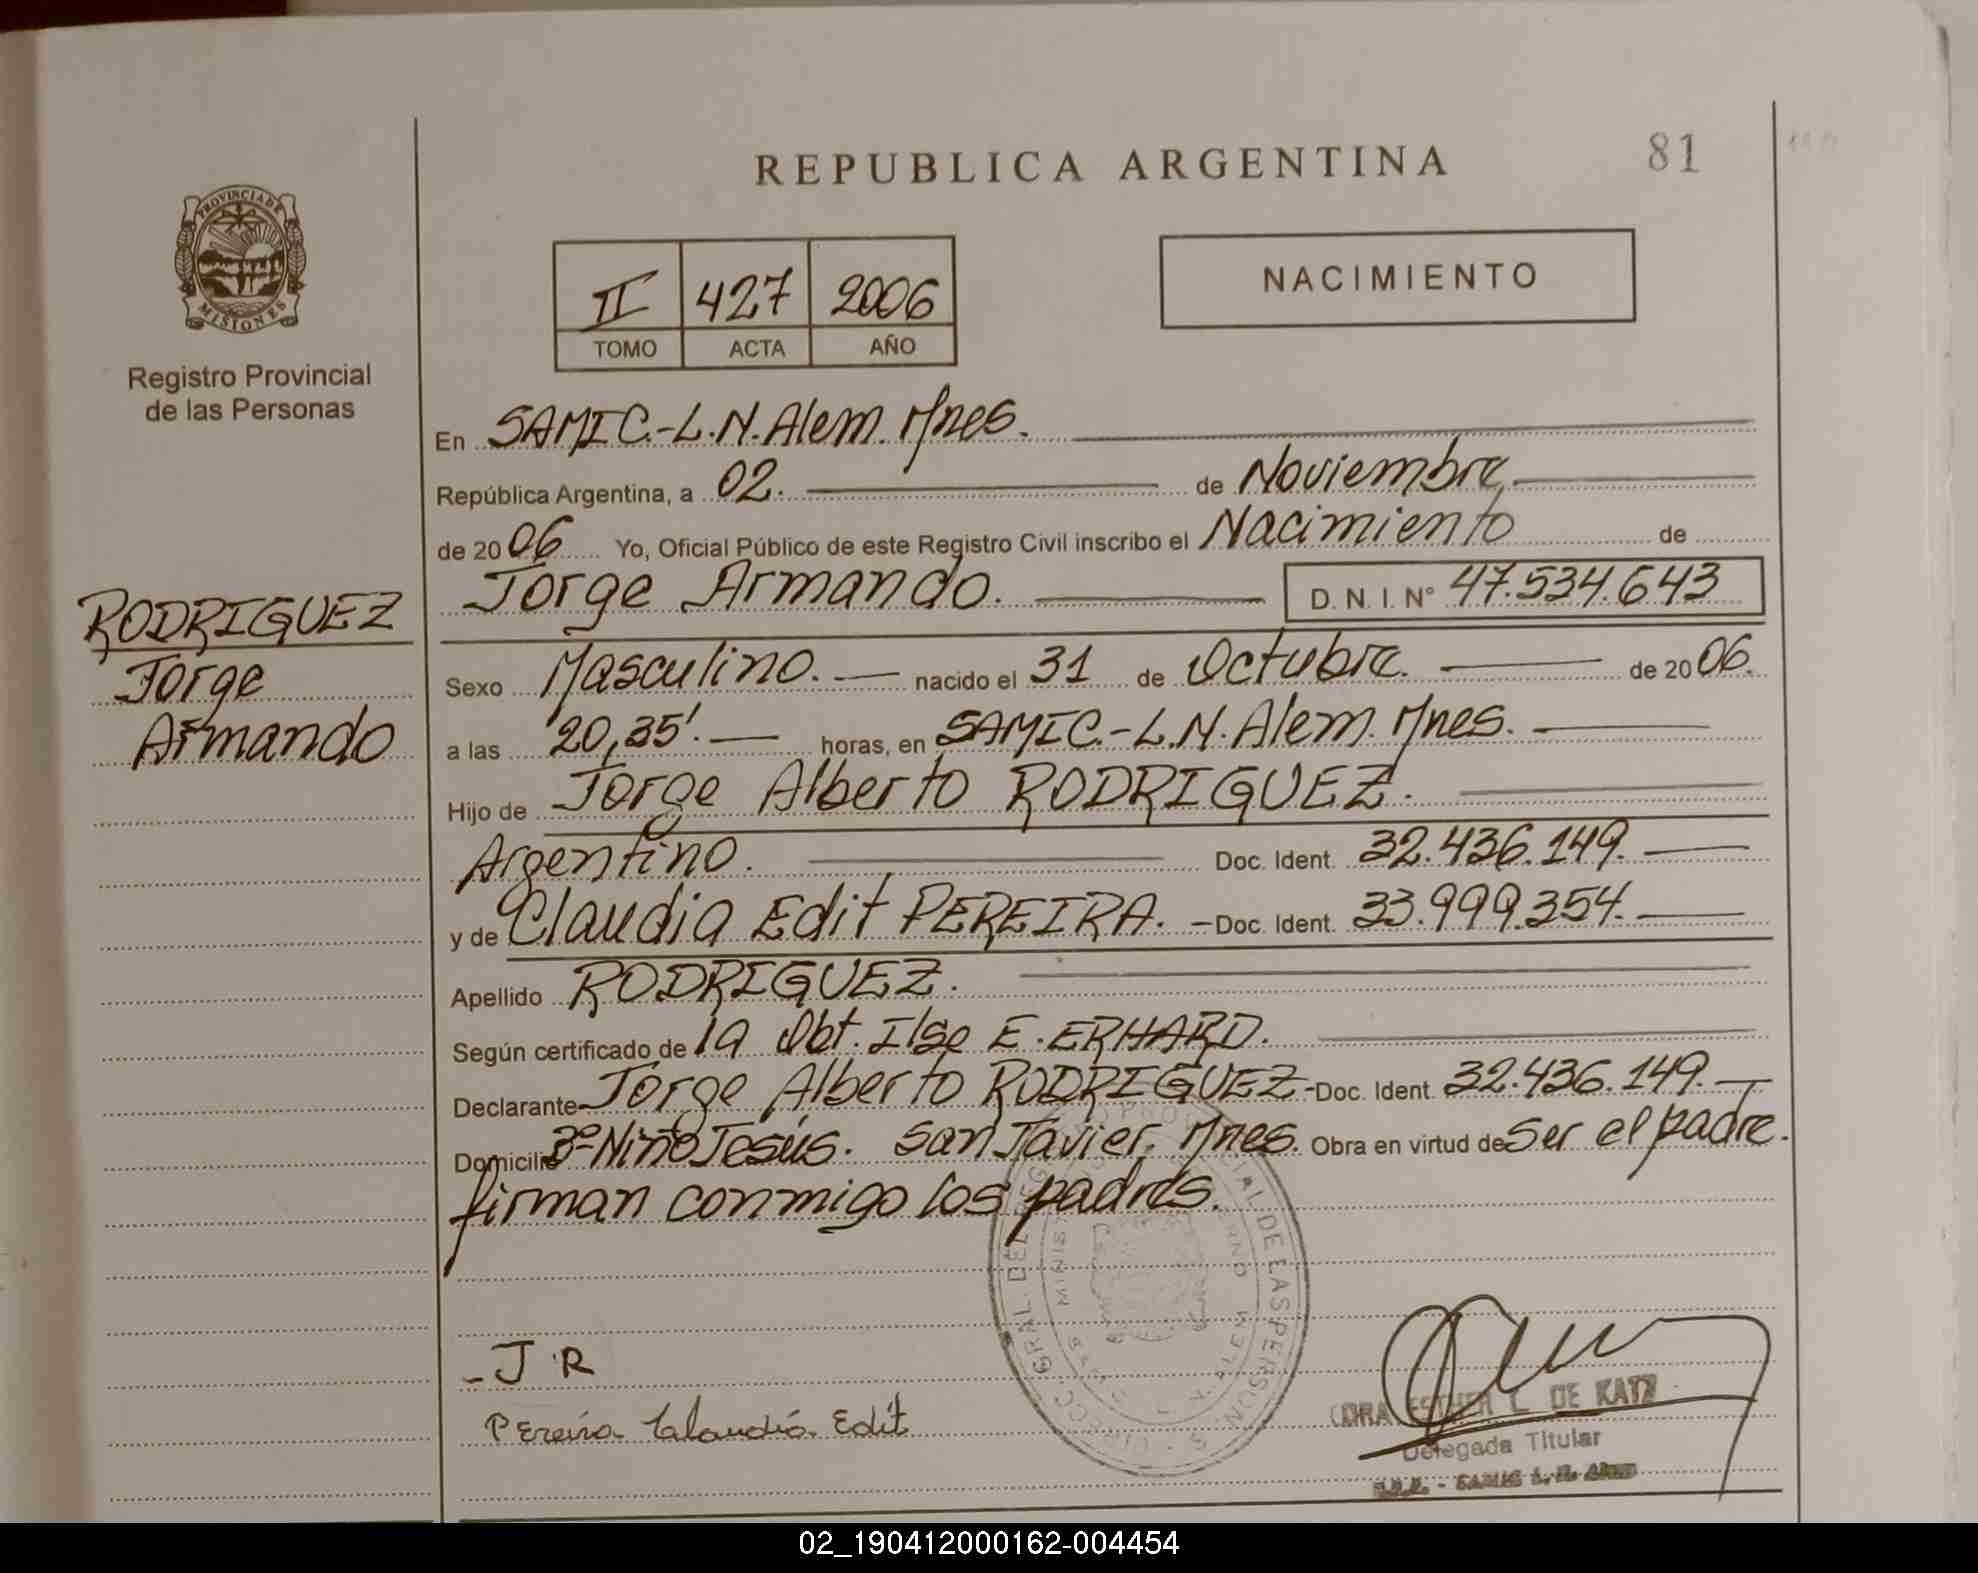 REPUBLICA ARGENTINA
81
PROVINCIA DE
MISIONES
Registro Provincial
de las Personas
II 427 2006
TOMO ACTA AÑO
NACIMIENTO
En SAMIC.-L.N.Alem. Mnes.
República Argentina, a 02. de Noviembre
de 2006 Yo, Oficial Público de este Registro Civil inscribo el Nacimiento de
Jorge Armando. D. N. I. N° 47.534.643
RODRIGUEZ
Jorge
Armando
Sexo Masculino. nacido el 31 de Octubre. de 2006.
a las 20,35'. horas, en SAMIC.-L.N.Alem. Mnes.
Hijo de Jorge Alberto RODRIGUEZ.
Argentino. Doc. Ident. 32.436.149.
y de Claudia Edit PEREIRA. Doc. Ident. 33.999.354.
Apellido RODRIGUEZ.
Según certificado de la Obt. Ilse E. ERHARD.
Declarante Jorge Alberto RODRIGUEZ-Doc. Ident. 32.436.149.
Domicilio 3º Niño Jesús. San Javier. Mnes. Obra en virtud de Ser el padre.
firman conmigo los padres.
- J R
Pereira Claudia Edit
ESTHER L. DE KATZ
Delegada Titular
SAMIC L. N. Alem
02_190412000162-004454